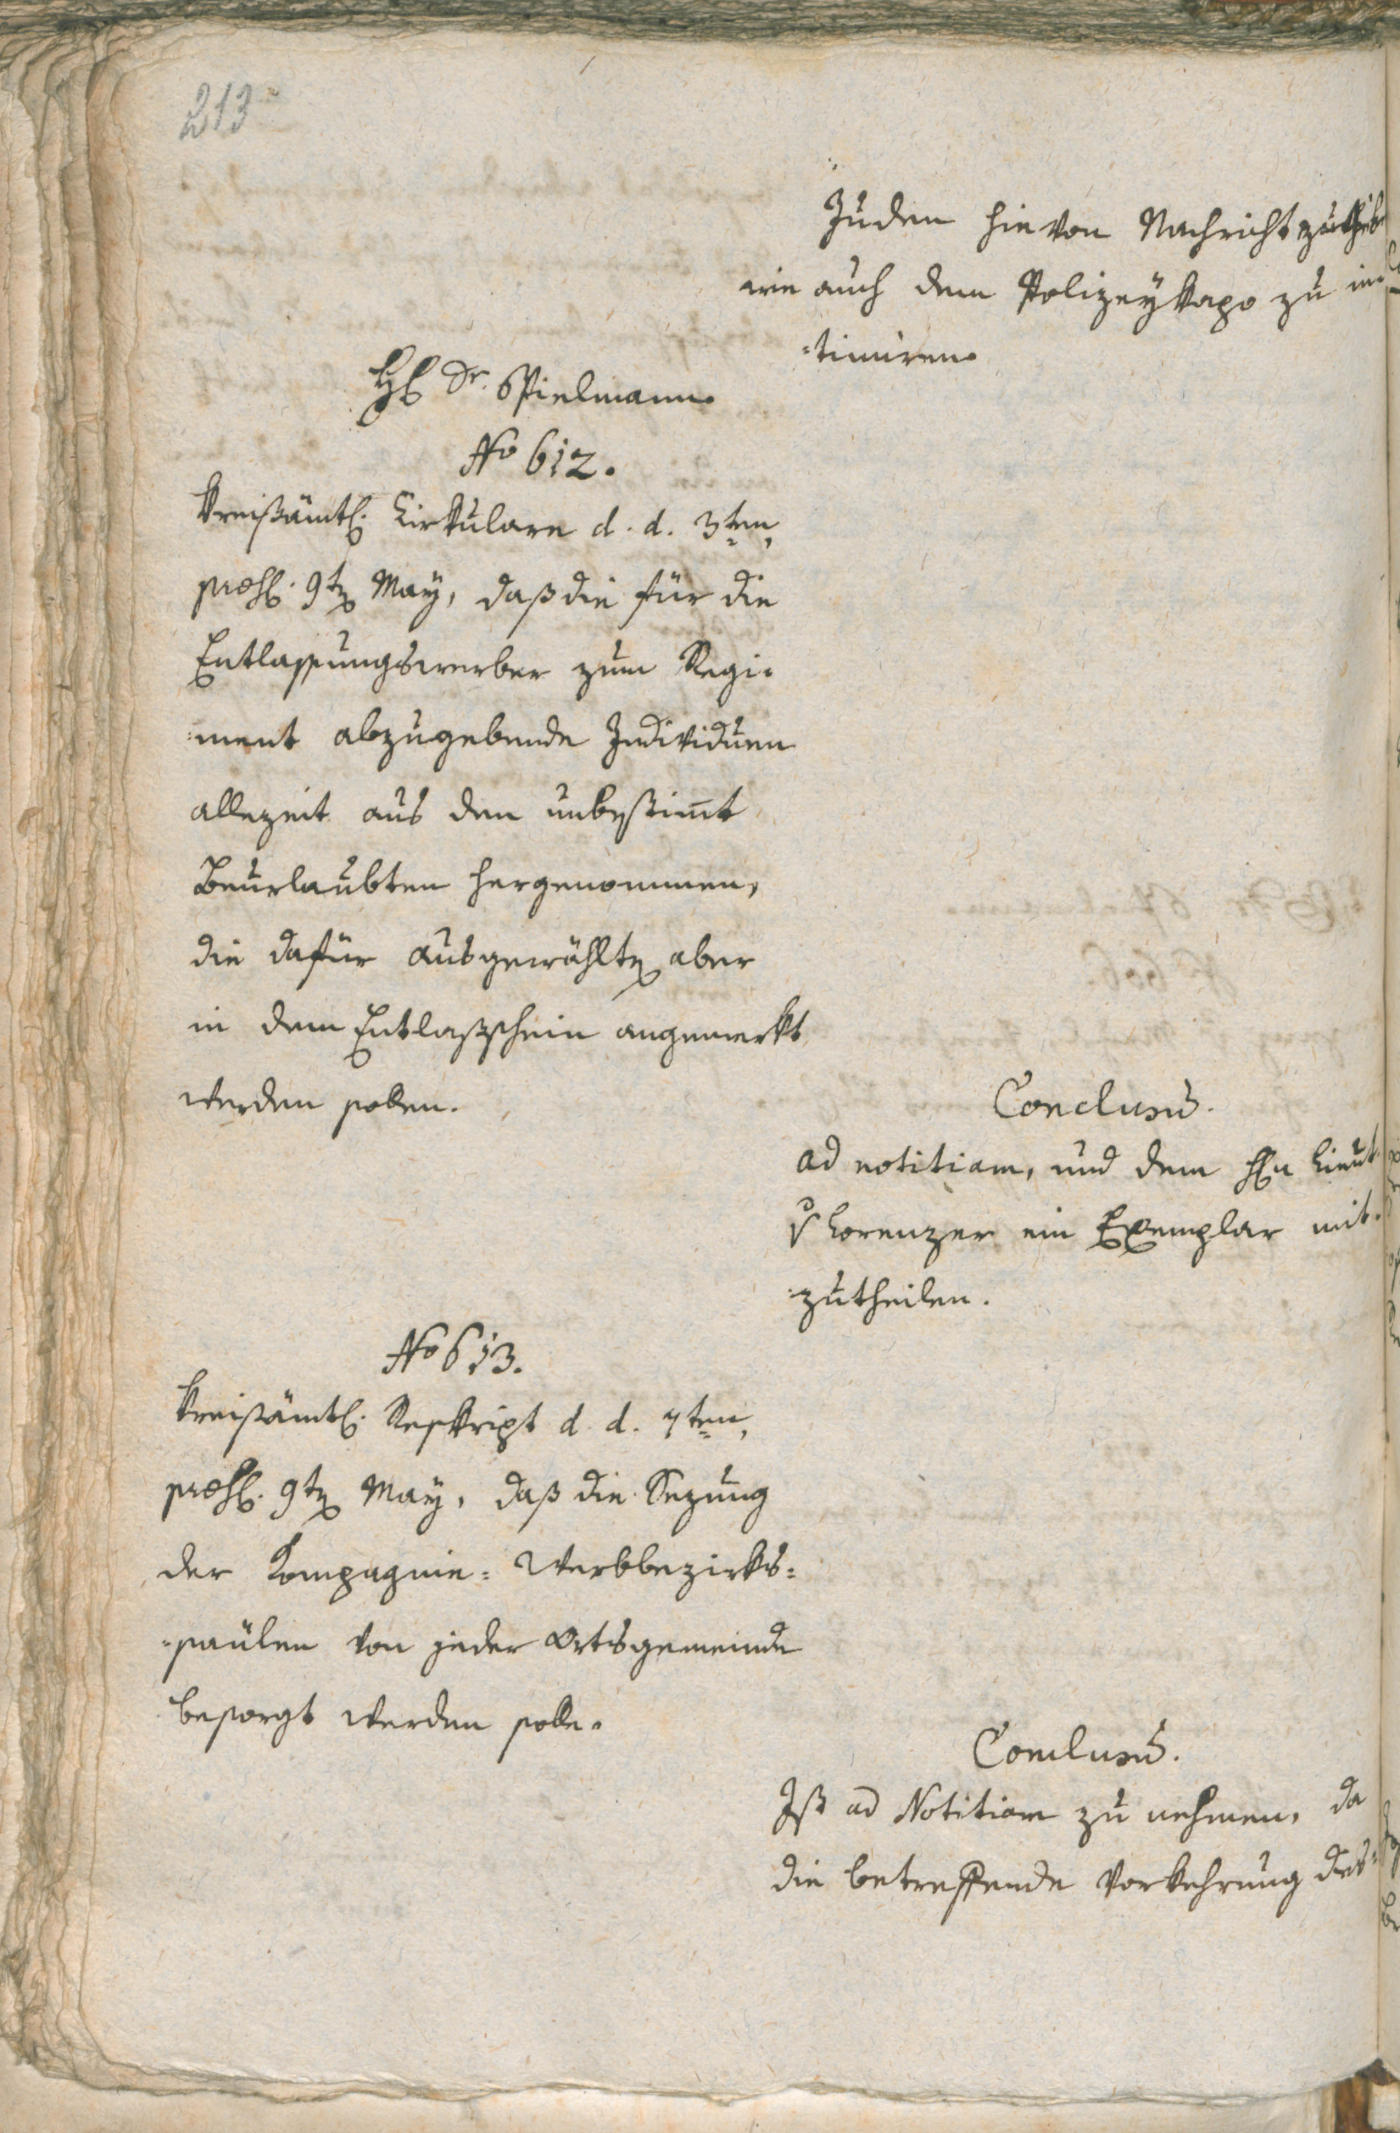 213
Juden hievon Nachricht zu
wie auch dem Polizeykapo zu in„
„timiren.
H. Dr. Spielmann.
No 612.
Kreißämtl. Cirkulare d. d. 3ten,
præs. 9t May, daß die für die
Entlassungswerber zum Regi„
„ment abzugebende Individuen
allezeit aus den unbestim̄t
Beurlaubten hergenommen,
die dafür ausgewählte aber
in dem Entlaßschein angemerkt
werden sollen.
Conclusū.
ad notitiam, und dem H. Lieut.
v Lorenzer ein Exemplar mit„
„zutheilen.
No 613.
Kreißämtl. Reskript d. d. 7ten,
præs. 9t May, daß die Sezung
der Kompagnie= Werbbezirks=
„säulen von jeder Ortsgemeinde
besorgt werden solle.
Conclusū.
Ist ad Notitiam zu nehmen, da
die betreffende Vorkehrung des„